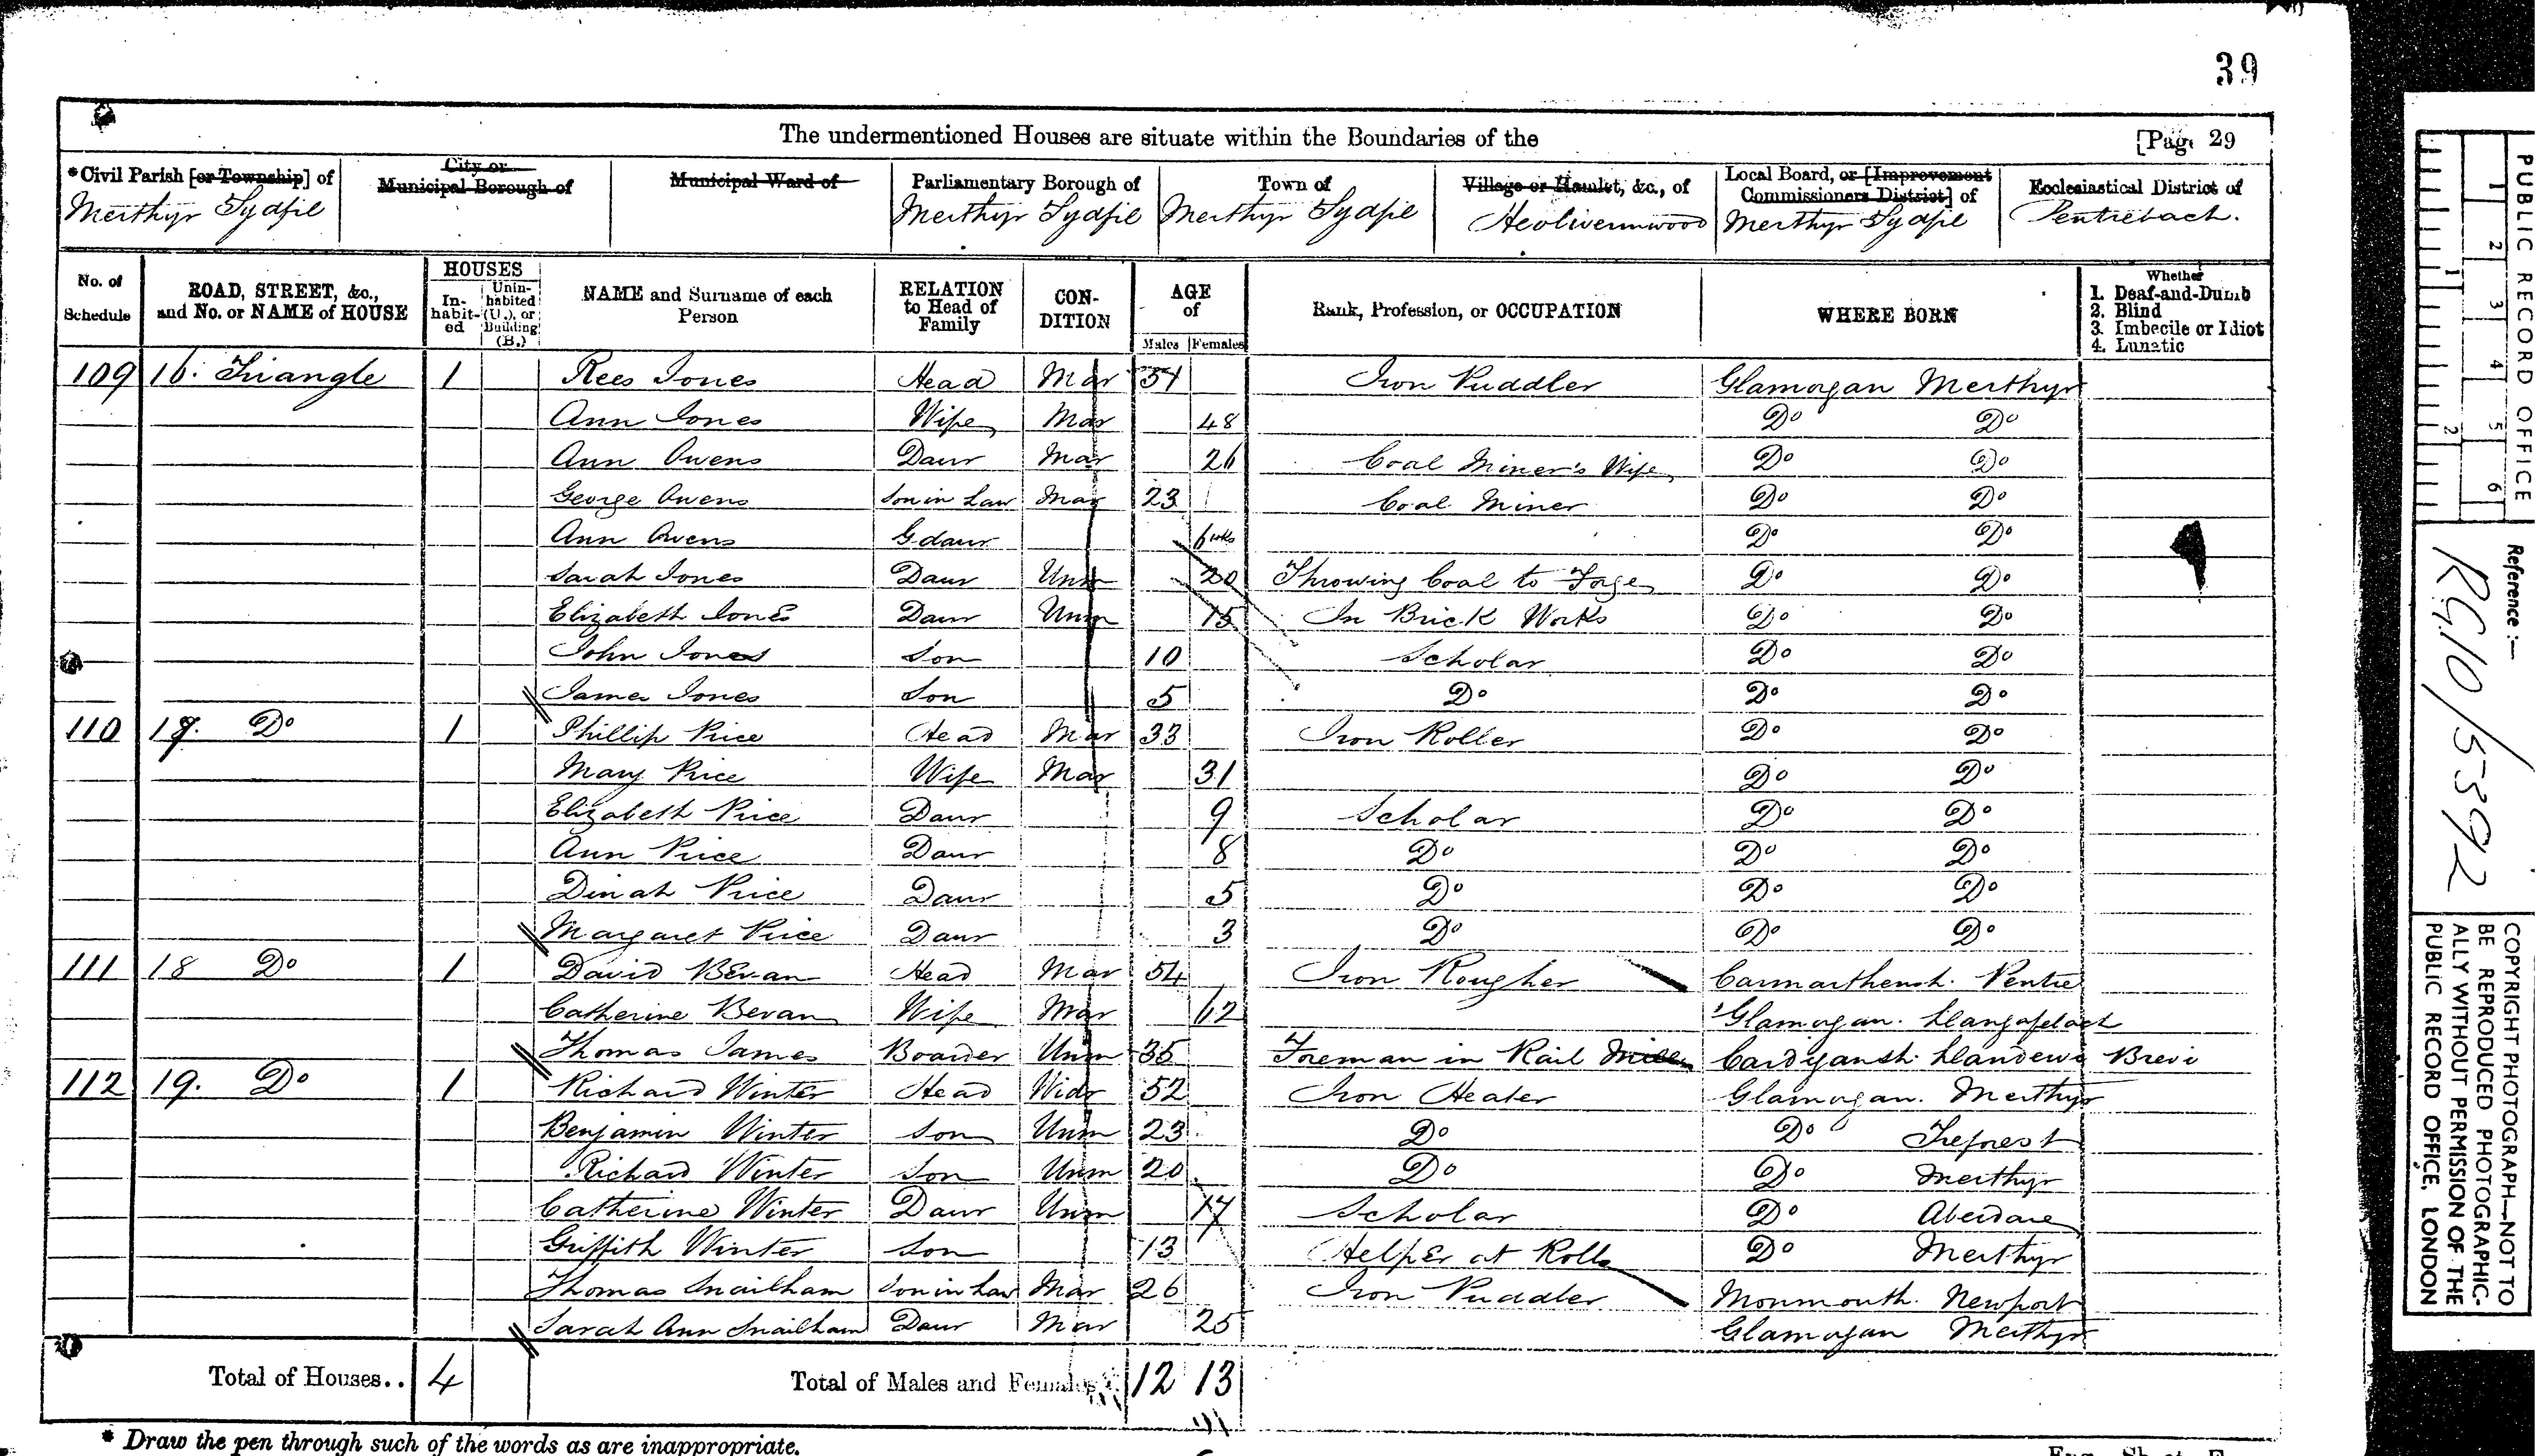 39
The undermentioned Houses are situate within the Boundaries of the [Page 29
*Civil Parish [or Township] of Merthyr Tydfil
City or Municipal Borough of
Municipal Ward of
Parliamentary Borough of Merthyr Tydfil
Town of Merthyr Tydfil
Village or Hamlet, &c., of Heolwermwood
Local Board, or [Improvement Commissioners District] of Merthyr Tydfil
Ecclesiastical District of Pentrebach.
No. of Schedule ROAD, STREET, &c., and No. or NAME of HOUSE HOUSES In-habit-ed Unin-habited (U.), or Building (B.) NAME and Surname of each Person RELATION to Head of Family CON-DITION AGE of Males Females Rank, Profession, or OCCUPATION WHERE BORN Whether 1. Deaf-and-Dumb 2. Blind 3. Imbecile or Idiot 4. Lunatic
109 16. Triangle 1 Rees Jones Head Mar 51 Iron Puddler Glamorgan Merthyr
Ann Jones Wife Mar 48 Do Do
Ann Owens Daur Mar 26 Coal Miner's Wife Do Do
George Owens Son in Law Mar 23 Coal Miner Do Do
Ann Owens G daur 6 wks Do Do
Sarah Jones Daur Unm 20 Throwing Coal to Forge Do Do
Elizabeth Jones Daur Unm 15 In Brick Works Do Do
John Jones Son 10 Scholar Do Do
James Jones Son 5 Do Do Do
110 17. Do 1 Phillip Price Head Mar 33 Iron Roller Do Do
Mary Price Wife Mar 31 Do Do
Elizabeth Price Daur 9 Scholar Do Do
Ann Price Daur 8 Do Do Do
Dinah Price Daur 5 Do Do Do
Margaret Price Daur 3 Do Do Do
111 18 Do 1 David Bevan Head Mar 54 Iron Rougher Carmarthensh. Pentre
Catherine Bevan Wife Mar 62 Glamorgan. Llangafelach
Thomas James Boarder Unm 35 Foreman in Rail Mill Cardigansh. Llandewi Brevi
112 19. Do 1 Richard Winter Head Widr 52 Iron Heater Glamorgan. Merthyr
Benjamin Winter Son Unm 23 Do Do Treforest
Richard Winter Son Unm 20 Do Do Merthyr
Catherine Winter Daur Unm 17 Scholar Do Aberdare
Griffith Winter Son 13 Helper at Rolls Do Merthyr
Thomas Snailham Son in Law Mar 26 Iron Puddler Monmouth. Newport
Sarah Ann Snailham Daur Mar 25 Glamorgan Merthyr
Total of Houses.. 4 Total of Males and Females.. 12 13
* Draw the pen through such of the words as are inappropriate.
PUBLIC RECORD OFFICE
1 2 3 4 5 6
1 2
Reference :—
RG.10/5392
COPYRIGHT PHOTOGRAPH—NOT TO
BE REPRODUCED PHOTOGRAPHIC-
ALLY WITHOUT PERMISSION OF THE
PUBLIC RECORD OFFICE, LONDON